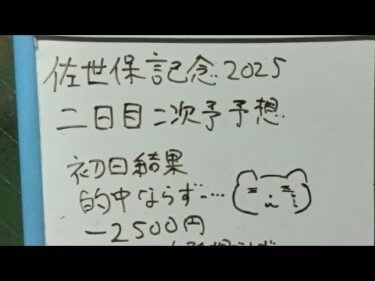 佐世保記念2025
二日目二次予予想
初日結果
的中ならず…
-2500円